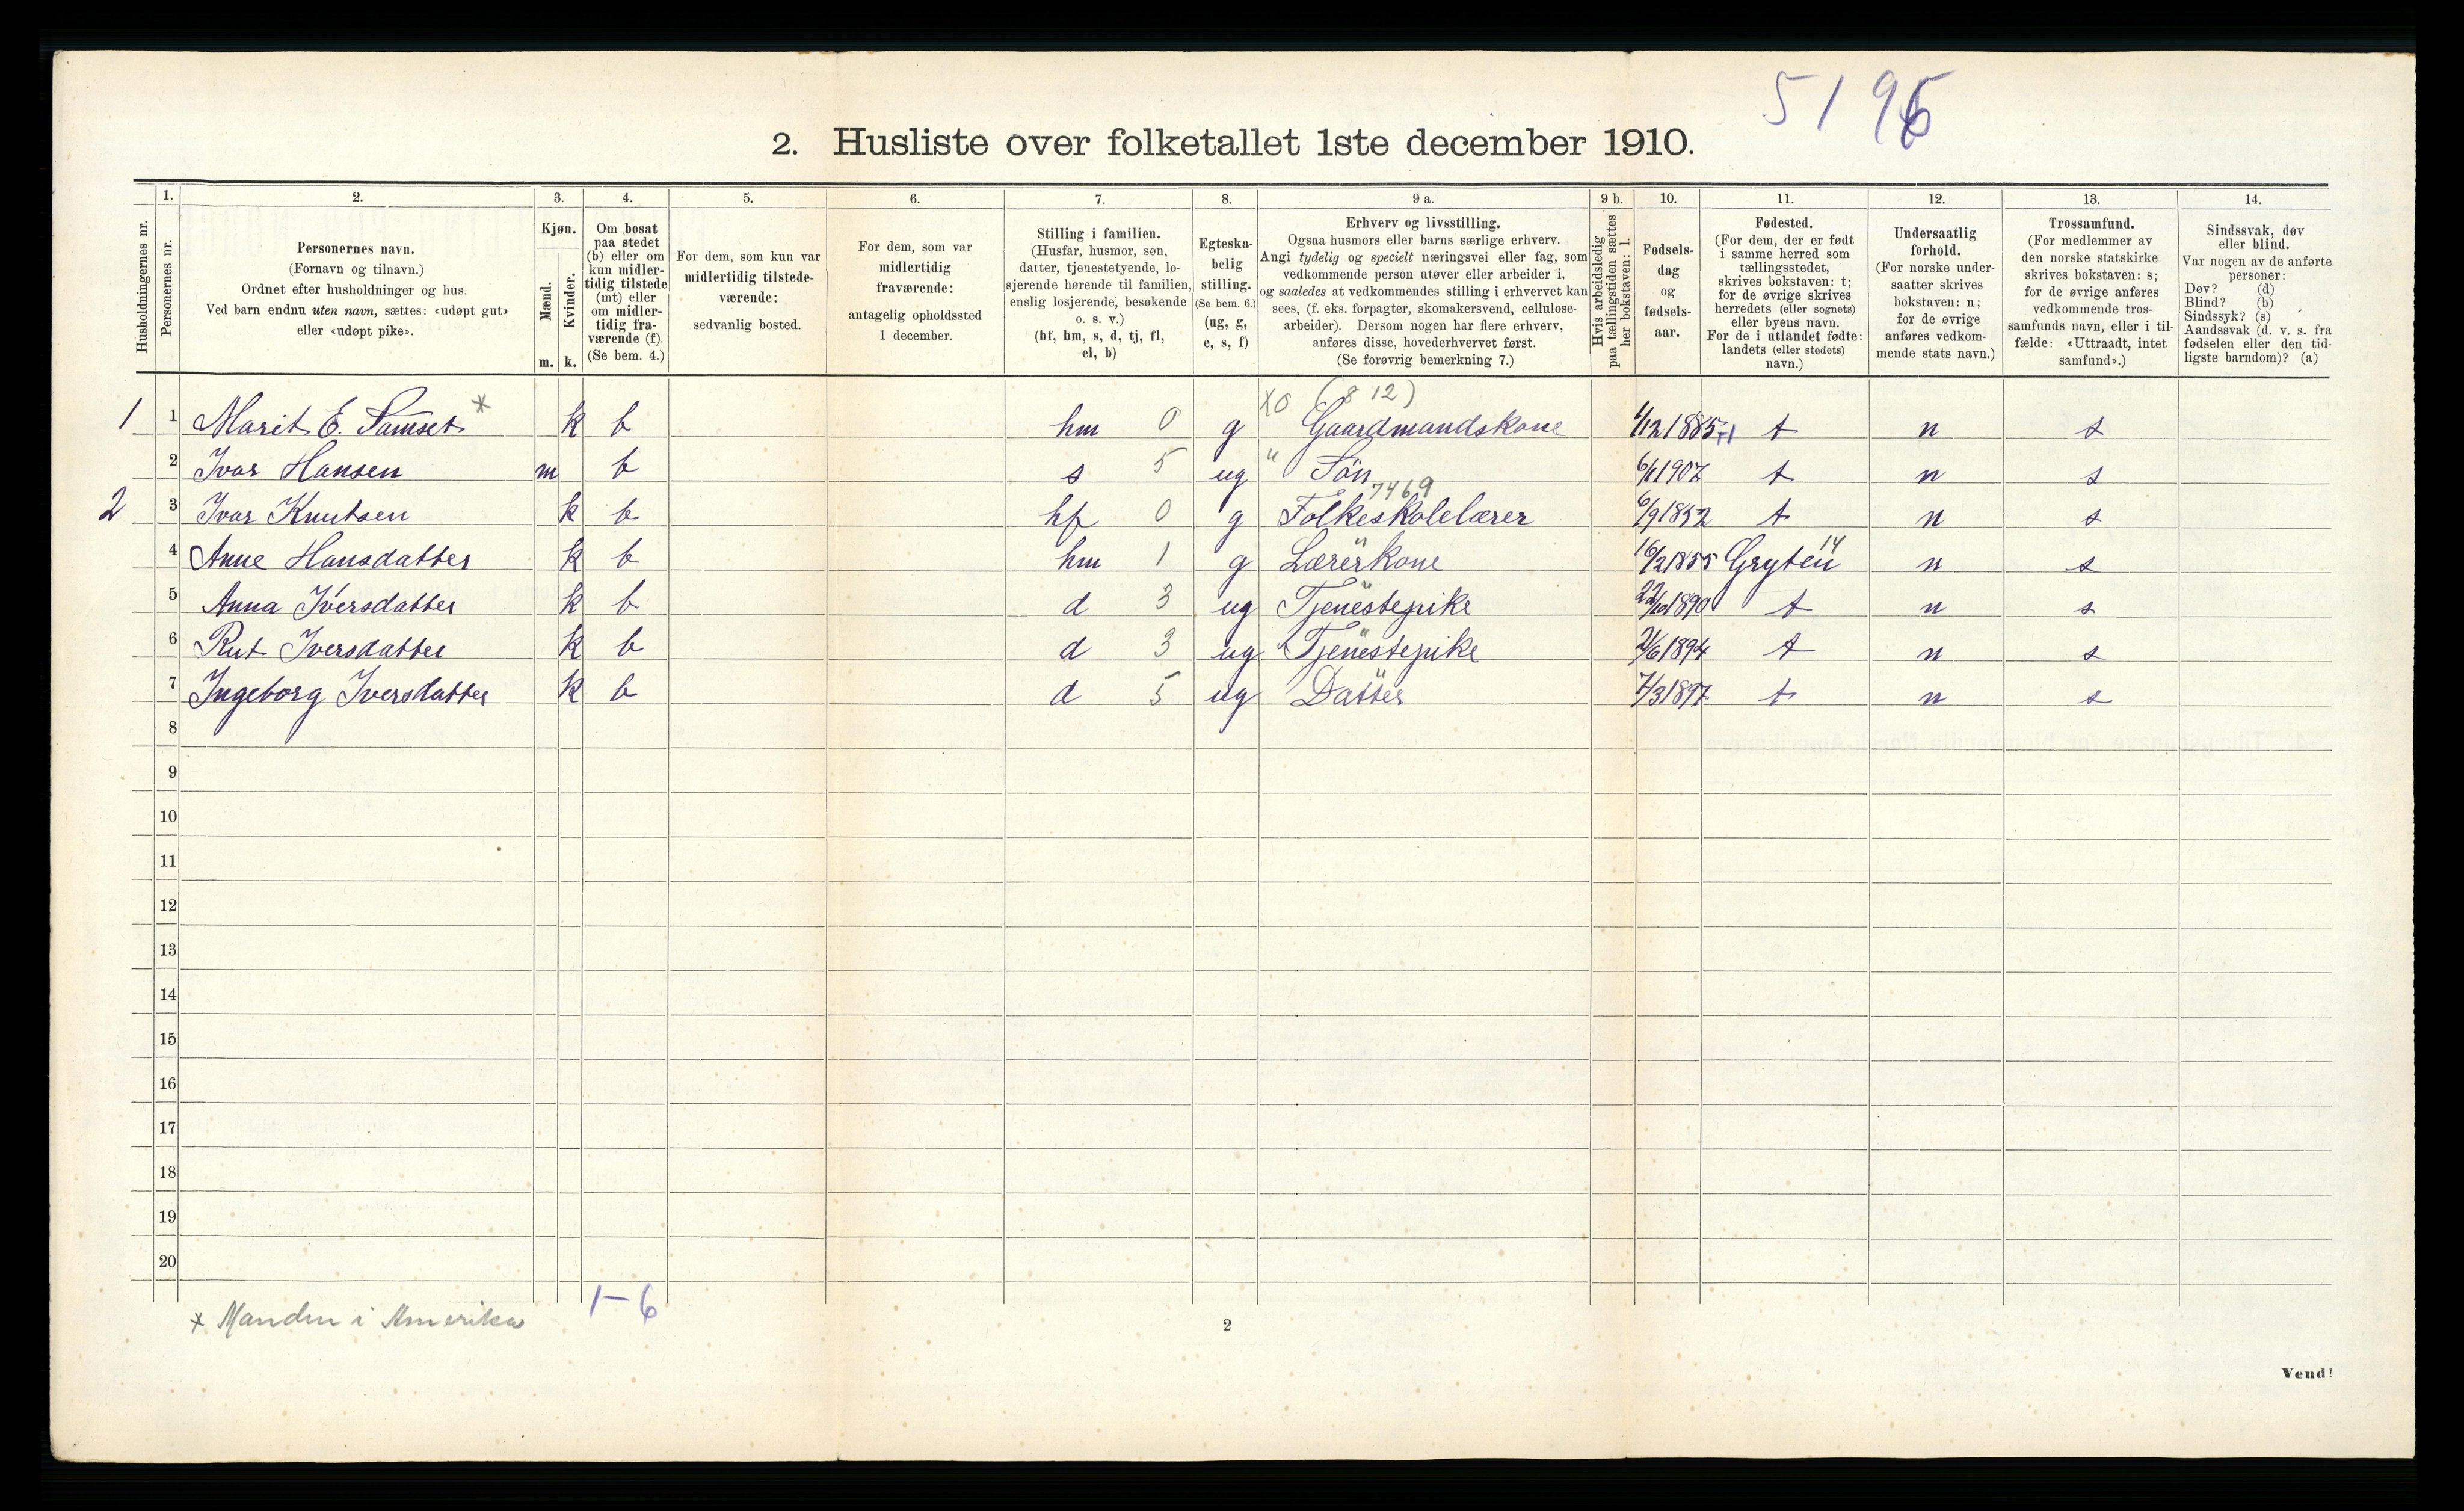 5196
2. Husliste over folketallet 1ste december 1910.
Husholdningernes nr.
1.
Personernes nr.
2.
Personernes navn.
(Fornavn og tilnavn.)
Ordnet efter husholdninger og hus.
Ved barn endnu uten navn, sættes: «udøpt gut»
eller «udøpt pike».
3.
Kjøn.
Mænd. Kvinder.
m. k.
4.
Om bosat
paa stedet
(b) eller om
kun midler-
tidig tilstede
(mt) eller
om midler-
tidig fra-
værende (f).
(Se bem. 4.)
5.
For dem, som kun var
midlertidig tilstede-
værende:
sedvanlig bosted.
6.
For dem, som var
midlertidig
fraværende:
antagelig opholdssted
1 december.
7.
Stilling i familien.
(Husfar, husmor, søn,
datter, tjenestetyende, lo-
sjerende hørende til familien,
enslig losjerende, besøkende
o. s. v.)
(hf, hm, s, d, tj, fl,
el, b)
8.
Egteska-
belig
stilling.
(Se bem. 6.)
(ug, g,
e, s, f)
9 a.
Erhverv og livsstilling.
Ogsaa husmors eller barns særlige erhverv.
Angi tydelig og specielt næringsvei eller fag, som
vedkommende person utøver eller arbeider i,
og saaledes at vedkommendes stilling i erhvervet kan
sees, (f. eks. forpagter, skomakersvend, cellulose-
arbeider). Dersom nogen har flere erhverv,
anføres disse, hovederhvervet først.
(Se forøvrig bemerkning 7.)
9 b.
Hvis arbeidsledig
paa tællingstiden sættes
her bokstaven: l.
10.
Fødsels-
dag
og
fødsels-
aar.
11.
Fødested.
(For dem, der er født
i samme herred som
tællingsstedet,
skrives bokstaven: t;
for de øvrige skrives
herredets (eller sognets)
eller byens navn.
For de i utlandet fødte:
landets (eller stedets)
navn.)
12.
Undersaatlig
forhold.
(For norske under-
saatter skrives
bokstaven: n;
for de øvrige
anføres vedkom-
mende stats navn.)
13.
Trossamfund.
(For medlemmer av
den norske statskirke
skrives bokstaven: s;
for de øvrige anføres
vedkommende tros-
samfunds navn, eller i til-
fælde: «Uttraadt, intet
samfund».)
14.
Sindssvak, døv
eller blind.
Var nogen av de anførte
personer:
Døv? (d)
Blind? (b)
Sindssyk? (s)
Aandssvak (d. v. s. fra
fødselen eller den tid-
ligste barndom)? (a)
XO (812)
1 1 Marit E. Samset * k b hm 0 g Gaardmandskone 1/12 1885 t n s
2 Ivar Hansen m b s 5 ug " Sön 6/1 1907 t n s
7469
2 3 Ivar Knutsen k b hf 0 g Folkeskolelærer 6/9 1852 t n s
4 Anne Hansdatter k b hm 1 g Lærerkone 16/2 1855 Gryten 14 n s
5 Anna Iversdatter k b d 3 ug Tjenestepike 22/10 1890 t n s
6 Rut Iversdatter k b d 3 ug Tjenestepike 21/6 1894 t n s
7 Ingeborg Iversdatter k b d 5 ug Datter 7/3 1897 t n s
8
9
10
11
12
13
14
15
16
17
18
19
20
1-6
* Manden i Amerika
2
Vend!